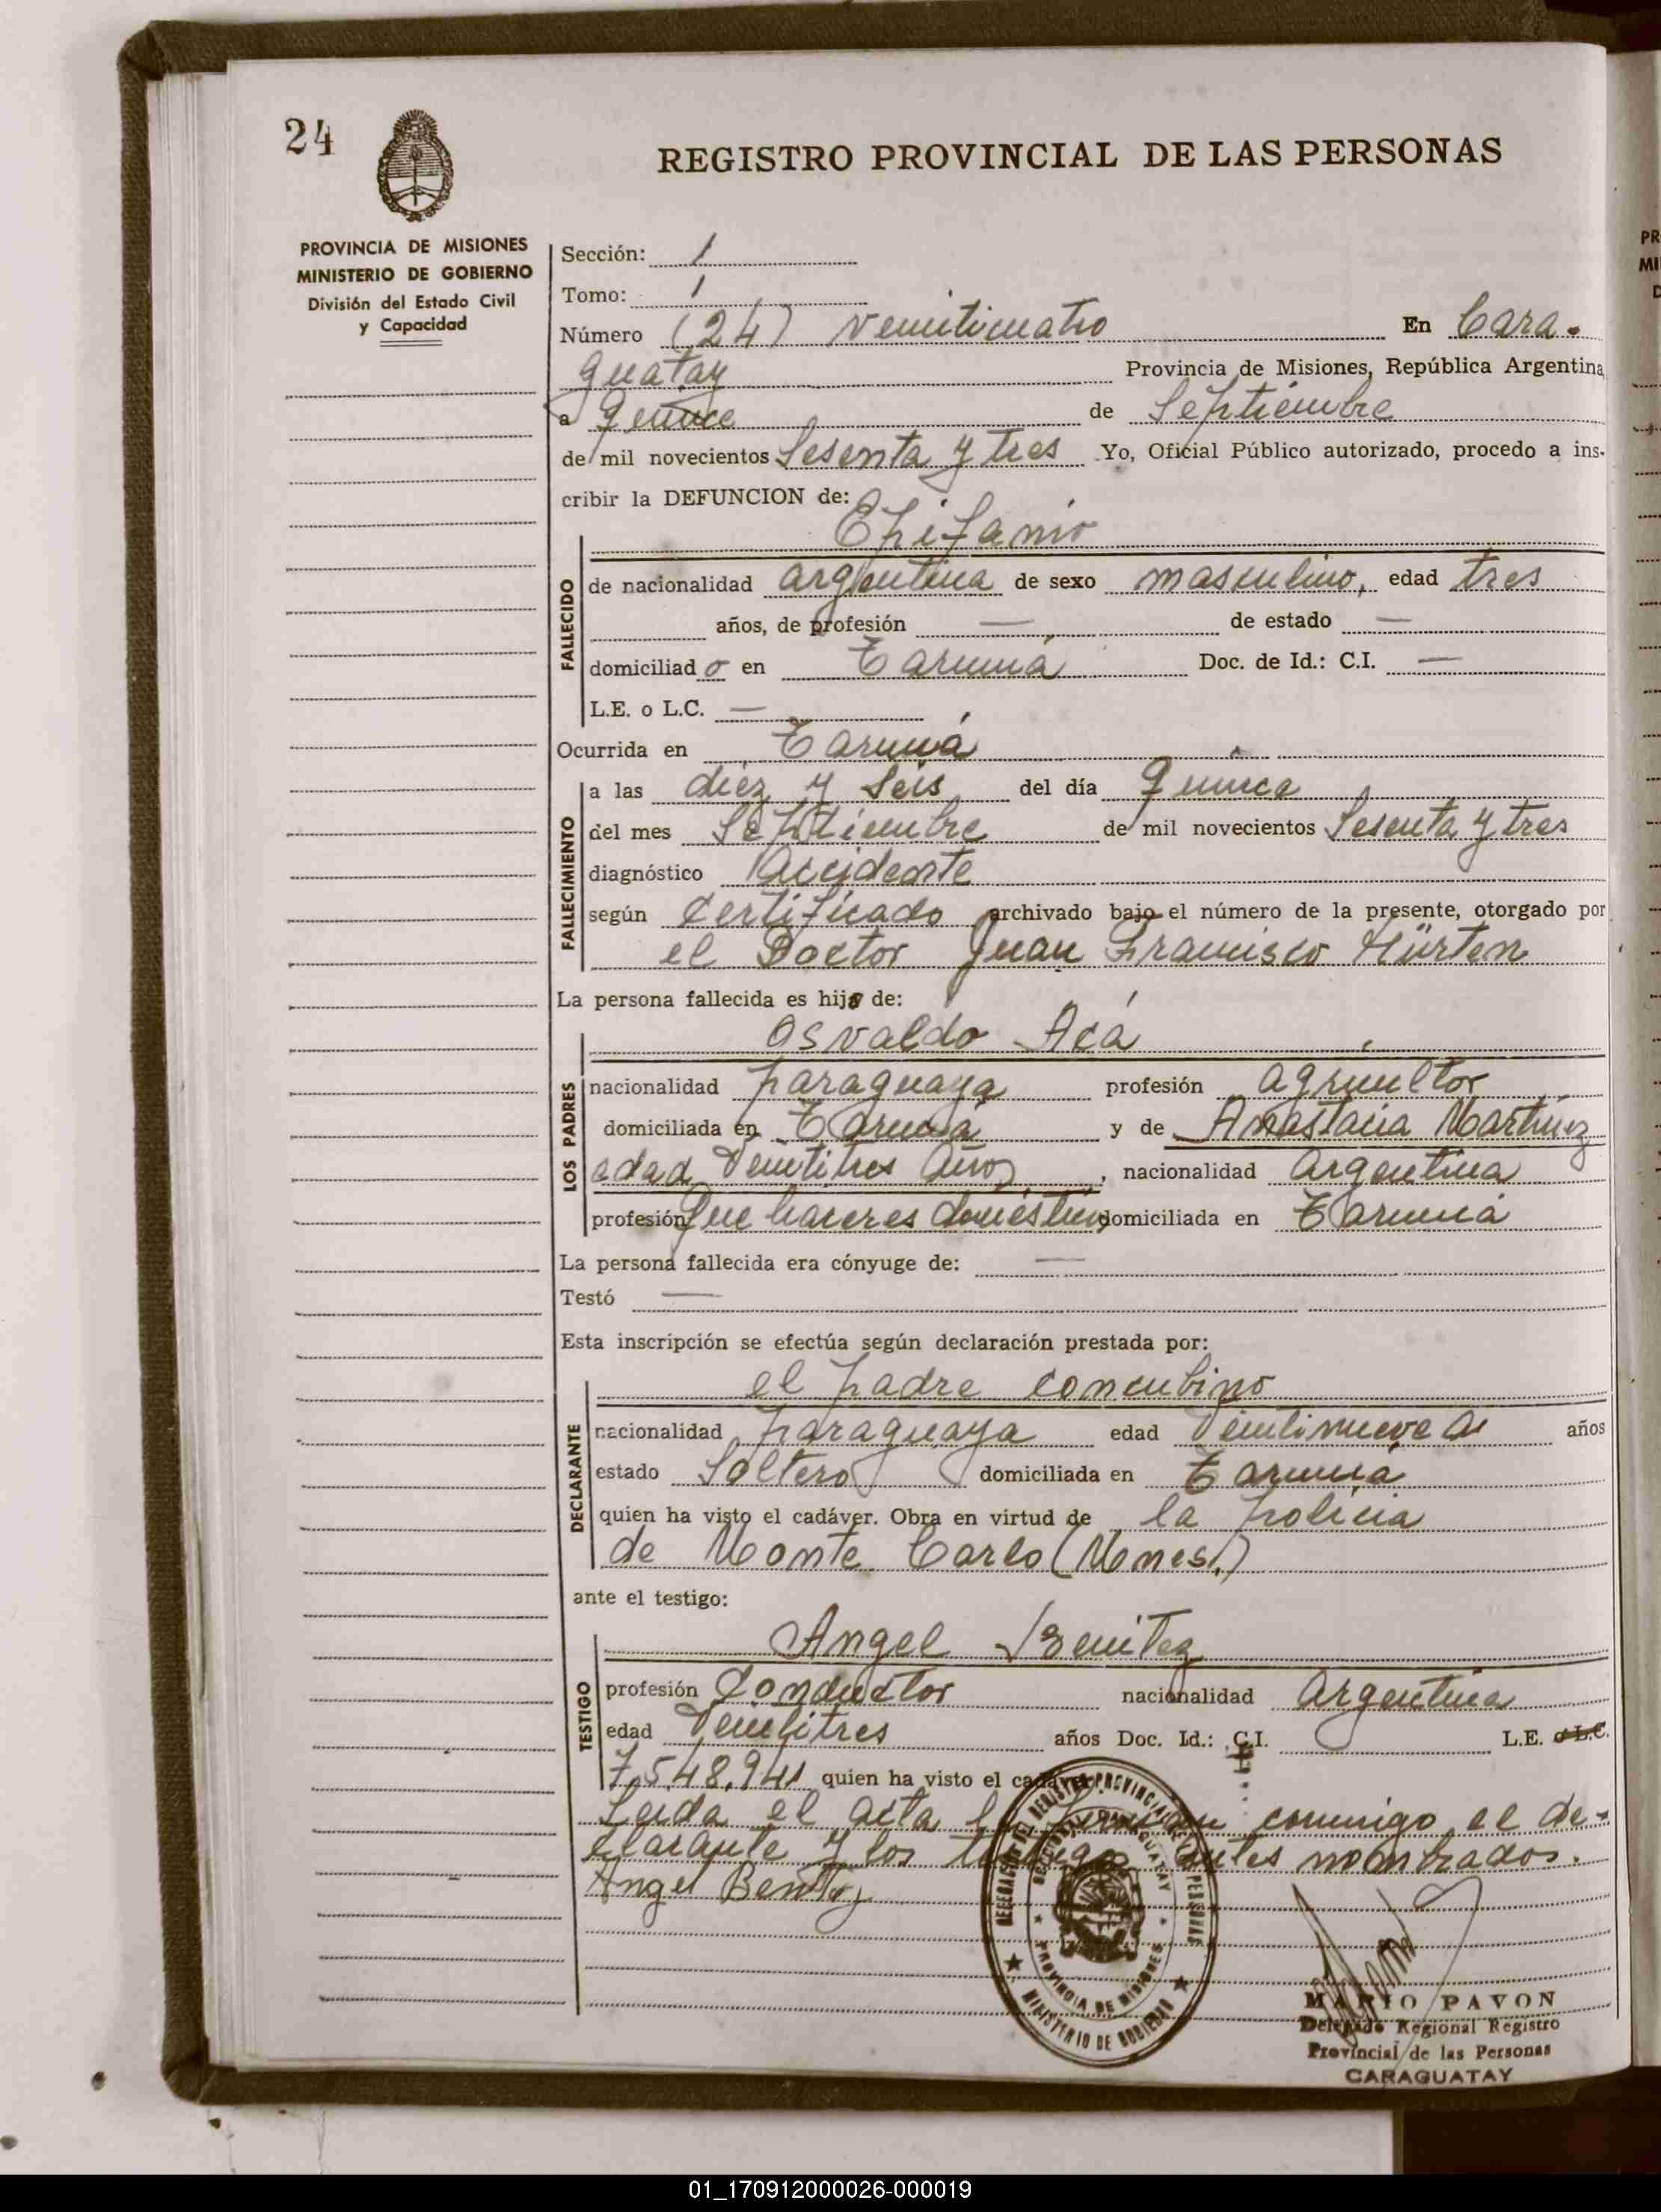 24
REGISTRO PROVINCIAL DE LAS PERSONAS
PROVINCIA DE MISIONES
MINISTERIO DE GOBIERNO
División del Estado Civil
y Capacidad
Sección: 1
Tomo: 1
Número (24) Veinticuatro En Cara-
guatay Provincia de Misiones, República Argentina,
a quince de Septiembre
de mil novecientos Sesenta y tres Yo, Oficial Público autorizado, procedo a ins-
cribir la DEFUNCION de:
Epifanio
FALLECIDO
de nacionalidad argentina de sexo masculino, edad tres
años, de profesión — de estado —
domiciliado en Tarumá Doc. de Id.: C.I. —
L.E. o L.C. —
Ocurrida en Tarumá
FALLECIMIENTO
a las diez y seis del día quince
del mes Septiembre de mil novecientos Sesenta y tres
diagnóstico Accidente
según Certificado archivado bajo el número de la presente, otorgado por
el Doctor Juan Francisco Hürten
La persona fallecida es hijo de:
LOS PADRES
Osvaldo Acá
nacionalidad paraguaya profesión agricultor
domiciliada en Tarumá y de Anastacia Martinez
edad Veintitres años, nacionalidad argentina
profesión Que haceres domésticos domiciliada en Tarumá
La persona fallecida era cónyuge de: —
Testó —
Esta inscripción se efectúa según declaración prestada por:
DECLARANTE
el padre concubino
nacionalidad paraguaya edad Veintinueve as años
estado Soltero domiciliada en Tarumá
quien ha visto el cadáver. Obra en virtud de la policia
de Monte Carlo (Mnes.)
ante el testigo:
TESTIGO
Angel Benitez
profesión Conductor nacionalidad argentina
edad Veintitres años Doc. Id.: C.I. L.E. o L.C.
7.548.941 quien ha visto el cadáver.
Leida el acta la firman conmigo el de-
clarante y los testigos antes nombrados.
Angel Benitez
DELEGACION DEL REGISTRO PROVINCIAL DE LAS PERSONAS
CARAGUATAY
PROVINCIA DE MISIONES
MINISTERIO DE GOBIERNO
MARIO PAVON
Delegado Regional Registro
Provincial de las Personas
CARAGUATAY
01_170912000026-000019